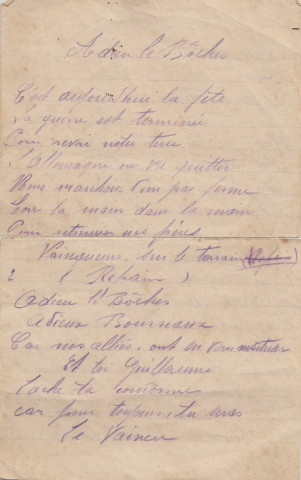 Adieu le Bôches
C'est aujourd'hui la fête
La guerre est terminée
Pour revoir notre terre
L'Allemagne on va quitter
Nous marchons l'un pas ferme
Tous la main dans la main
Pour retrouver nos frères
Vainqueurs, sur le terrain
2 ( Refrain )
Adieu les Bôches
Adieux Bourreaux
Car nos alliés, ont su vous
Et toi Guillaume
Lache ta couronne
car pour toujours, tu seras
Le Vaincu